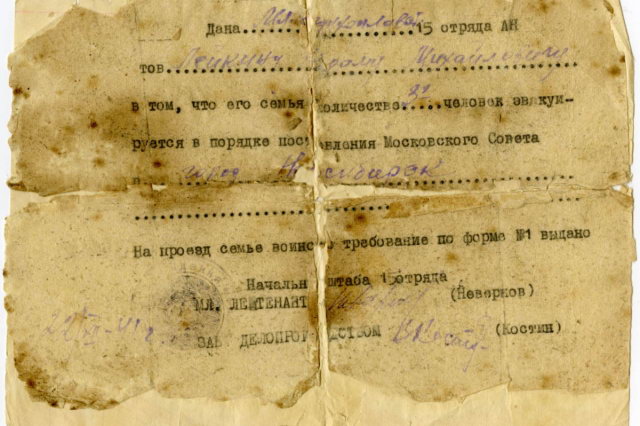 Дана 15 отряда АН
тов. Михайловичу
в том, что его семья количестве человек эвакуи-
руется в порядке постановления Московского Совета
в город Новосибирск
На проезд семье воинское требование по форме №1 выдано
Начальник штаба 15отряда
МЛ. ЛЕЙТЕНАНТ (Неверков)
22 41 г.
ЗАВ ДЕЛОПРОИЗВОДСТВОМ (Костин)